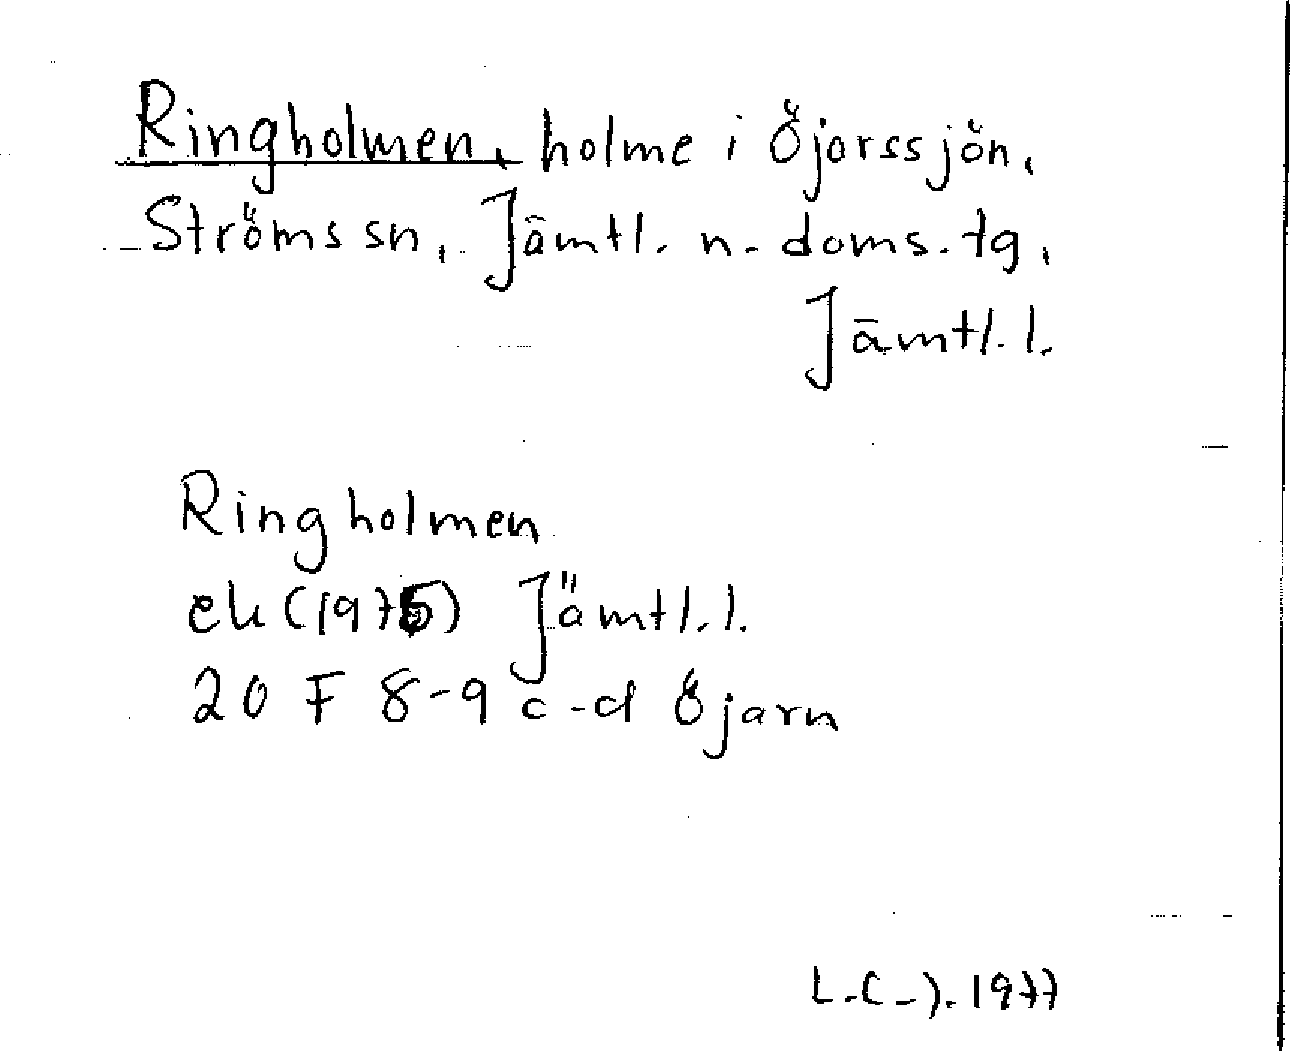 Ringholmen, holme i Öjarssjön,
Ströms sn, Jämtl. n. doms. tg,
Jämtl. l.
Ringholmen
ek (1975) Jämtl. l.
20 F 8-9 c-d Öjarn
L.C-J. 1977